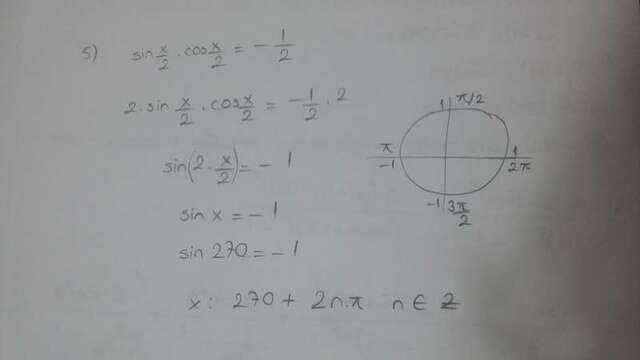 5) sin x/2 . cos x/2 = - 1/2
2. sin x/2 . cos x/2 = - 1/2 . 2
sin(2. x/2) = - 1
sin x = - 1
sin 270 = - 1
x : 270 + 2n.π n ∈ Z
1 π/2
π
-1
1
2π
-1 3π/2